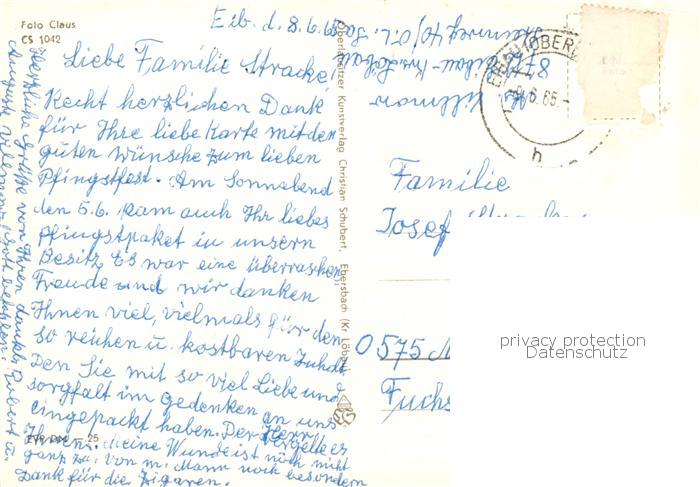 Foto Claus
CS 1042
Eib. d. 8.6.65
Liebe Familie Stracke!
Recht herzlichen Dank
für Ihre liebe Karte mit den
guten Wünsche zum lieben
Pfingstfest. Am Sonnabend
den 5.6. kam auch Ihr liebes
Pfingstpaket in unsern
Besitz Es war eine überraschende
Freude und wir danken
Ihnen viel, vielmals für den
so reichen u. kostbaren Inhalt
Den Sie mit so viel Liebe und
sorgfalt im Gedenken an uns
eingepackt haben. Der Herr vergelte es
Ihnen. Meine Wunde ist noch nicht
ganz zu. Von m. Mann noch besondern
Dank für die Zigaren.
Herzliche Grüße von Ihren dankb. Robert u.
Auguste Gott befohlen!
EVP DM -.25
Oberlausitzer Kunstverlag Christian Schubert, Ebersbach (Kr. Löbau)
8712 Eibau - Kr. Löbau
6.65.-
h
Familie
Josef
0575
Fuchs
privacy protection
Datenschutz